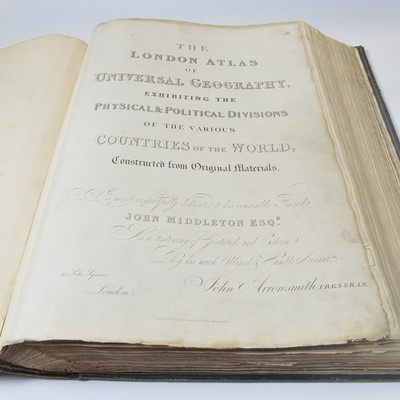 THE
LONDON ATLAS
OF
UNIVERSAL GEOGRAPHY,
EXHIBITING THE
PHYSICAL & POLITICAL DIVISIONS
OF THE VARIOUS
COUNTRIES OF THE WORLD,
Constructed from Original Materials.
most respectfully dedicated to his venerable Friend
JOHN MIDDLETON ESQR.
As a testimony of Gratitude and Esteem
By his much Obliged & Humble Servant
London.
John Arrowsmith,